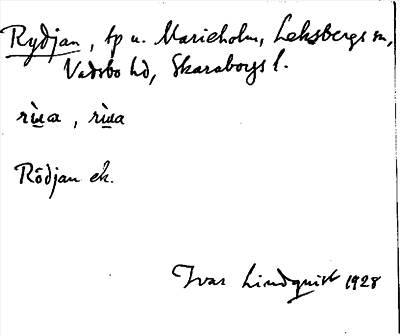 Rydjan, tp u. Marieholm, Leksbergs sn,
Vadsbo hd, Skaraborgs l.
Rödjan ek.
Ivar Lindquist 1928